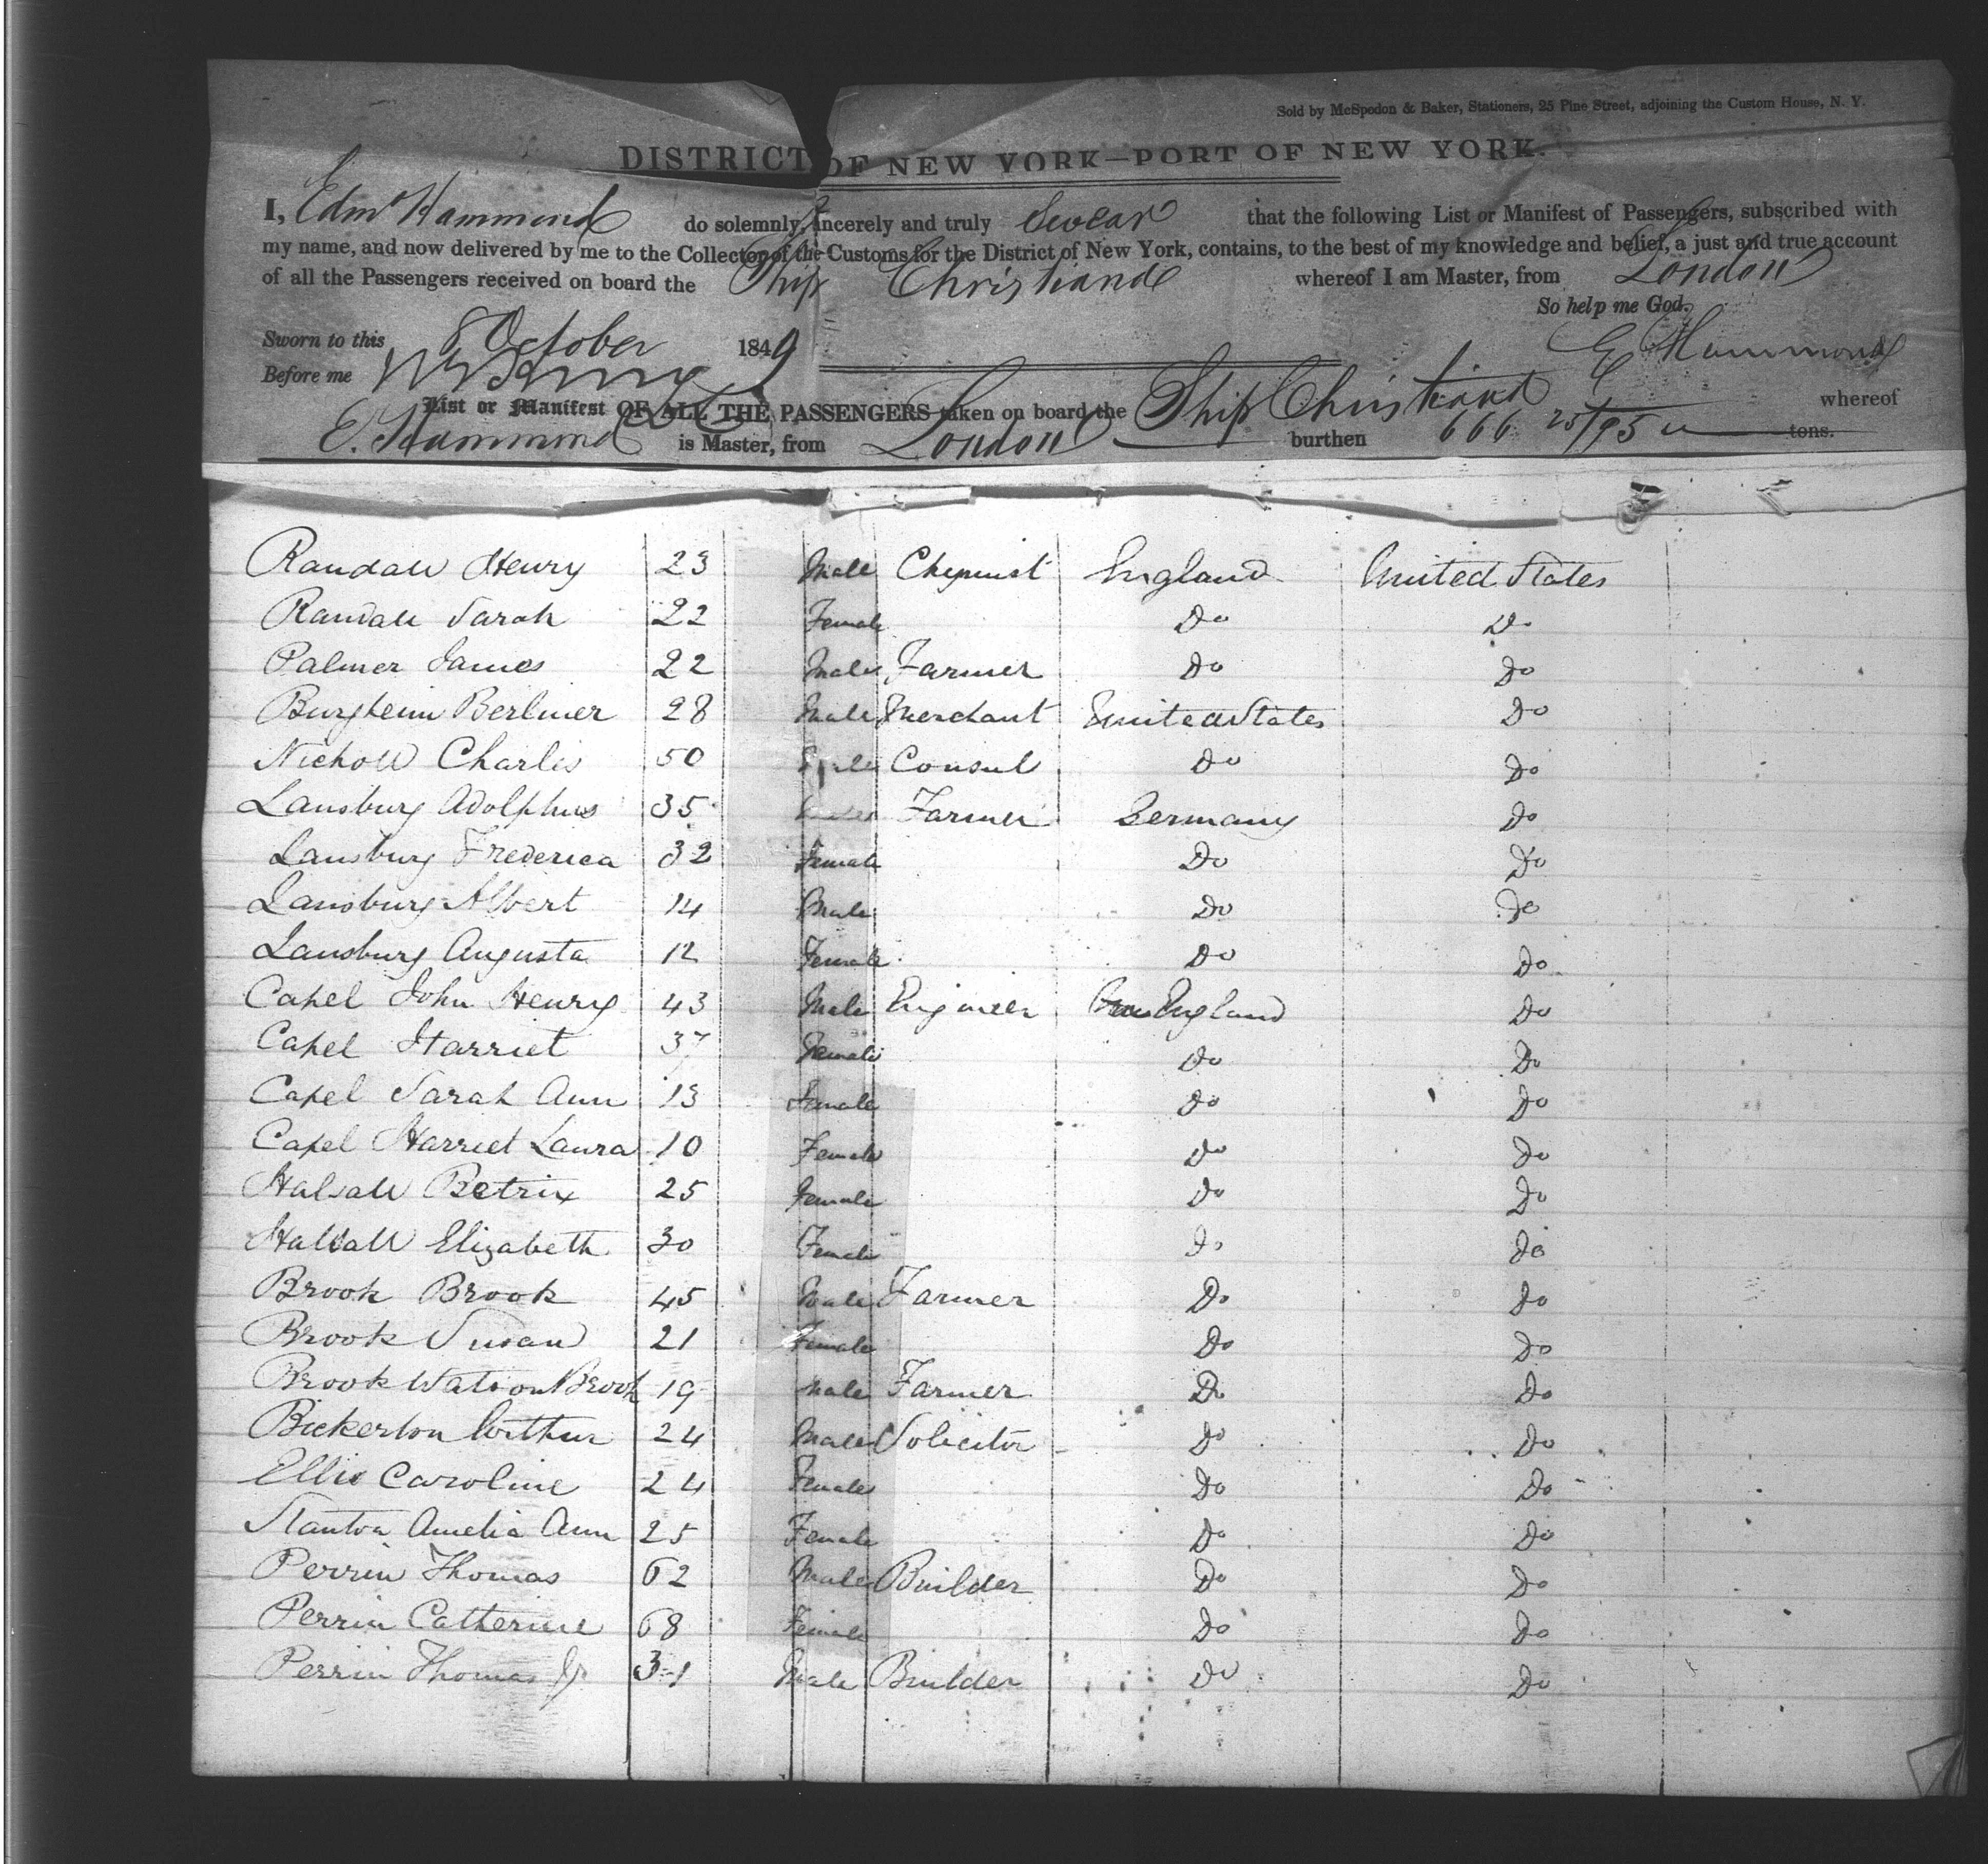 Sold by McSpedon & Baker, Stationers, 25 Pine Street, adjoining the Custom House, N. Y.
DISTRICT OF NEW YORK—PORT OF NEW YORK.
I, Edmd Hammond do solemnly, sincerely and truly Swear that the following List or Manifest of Passengers, subscribed with
my name, and now delivered by me to the Collector of the Customs for the District of New York, contains, to the best of my knowledge and belief, a just and true account
of all the Passengers received on board the Ship Christiana whereof I am Master, from London
So help me God.
Sworn to this 8 October 1849 E Hammond
Before me
List or Manifest OF ALL THE PASSENGERS taken on board the Ship Christiana whereof
E. Hammond is Master, from London burthen 666 25/95 tons.
Randall Henry 23 Male Chymist England United States
Randall Sarah 22 Female Do Do
Palmer James 22 Male Farmer Do Do
Burgheim Berliner 28 Male Merchant United States Do
Nicholl Charles 50 Male Consul Do Do
Lansburg Adolphus 35 Farmer Germany Do
Lansburg Frederica 32 Female Do Do
Lansburg Albert 14 Male Do Do
Lansburg Augusta 12 Female Do Do
Capel John Henry 43 Male Engineer England Do
Capel Harriet 37 Female Do Do
Capel Sarah Ann 13 Female Do Do
Capel Harriet Laura 10 Female Do Do
Halsall Betrix 25 Female Do Do
Halsall Elizabeth 30 Female Do Do
Brook Brook 45 Male Farmer Do Do
Brook Susan 21 Female Do Do
Brook Watson Brook 19 Male Farmer Do Do
Bickerton Arthur 24 Male Solicitor Do Do
Ellis Caroline 24 Female Do Do
Stanton Amelia Ann 25 Female Do Do
Perrin Thomas 62 Male Builder Do Do
Perrin Catherine 68 Female Do Do
Perrin Thomas Jr 31 Male Builder Do Do